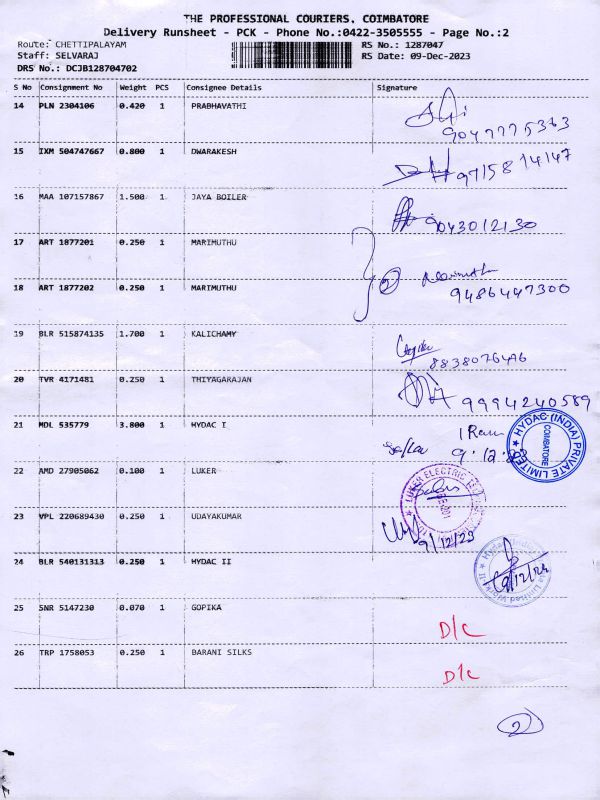 THE PROFESSIONAL COURIERS, COIMBATORE
Delivery Runsheet - PCK - Phone No.:0422-3505555 - Page No.:2
Route: CHETTIPALAYAM
RS No.: 1287047
Staff: SELVARAJ
RS Date: 09-Dec-2023
DRS No.: DCJB128704702
S No Consignment No Weight PCS Consignee Details Signature
14 PLN 2304106 0.420 1 PRABHAVATHI
9047775363
15 IXM 504747667 0.800 1 DWARAKESH
9715814147
16 MAA 107157867 1.500 1 JAYA BOILER
9043012130
17 ART 1877201 0.250 1 MARIMUTHU
2 Marimuthu
18 ART 1877202 0.250 1 MARIMUTHU
9486447300
19 BLR 515874135 1.700 1 KALICHAMY
8838076496
20 TVR 4171481 0.250 1 THIYAGARAJAN
9994240589
21 MDL 535779 3.800 1 HYDAC I
9.12.23
HYDAC (INDIA) PRIVATE LIMITED
COIMBATORE
22 AMD 27905062 0.100 1 LUKER
LUKER ELECTRIC
23 VPL 220689430 0.250 1 UDAYAKUMAR
9/12/23
24 BLR 540131313 0.250 1 HYDAC II
25 SNR 5147230 0.070 1 GOPIKA
D/C
26 TRP 1758053 0.250 1 BARANI SILKS
D/C
2